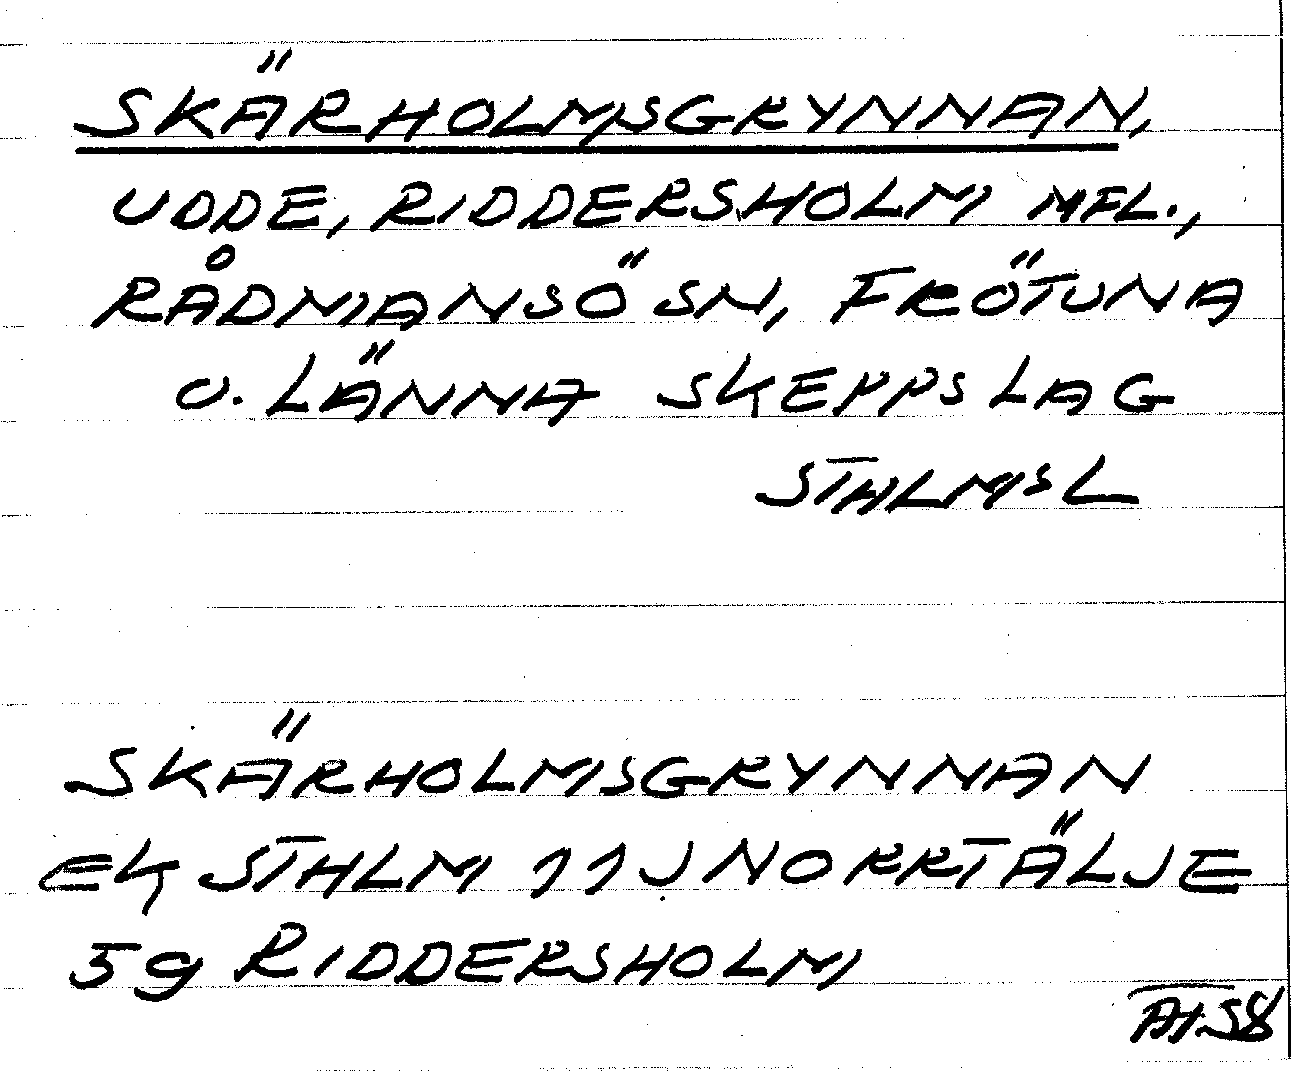 SKÄRHOLMSGRYNNAN,
UDDE, RIDDERSHOLM MFL.,
RÅDMANSÖ SN, FRÖTUNA
O. LÄNNA SKEPPSLAG
STHLMSL
SKÄRHOLMSGRYNNAN
EK STHLM 11J NORRTÄLJE
5g RIDDERSHOLM